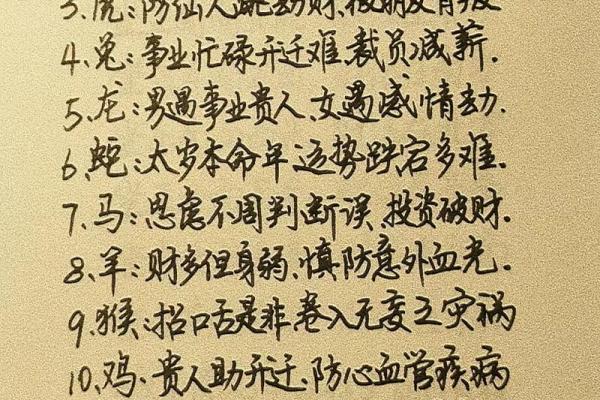 3、虎:防仙人跳劫财,被朋友背叛
4、兔:事业忙碌升迁难,裁员减薪.
5、龙:男遇事业贵人,女遇感情劫.
6、蛇:太岁本命年运势跌宕多难.
7、马:思虑不周判断误,投资破财.
8、羊:财多但身弱,慎防意外血光.
9、猴:招口舌是非,卷入无妄之灾祸
10、鸡.贵人助升迁、防心血管疾病